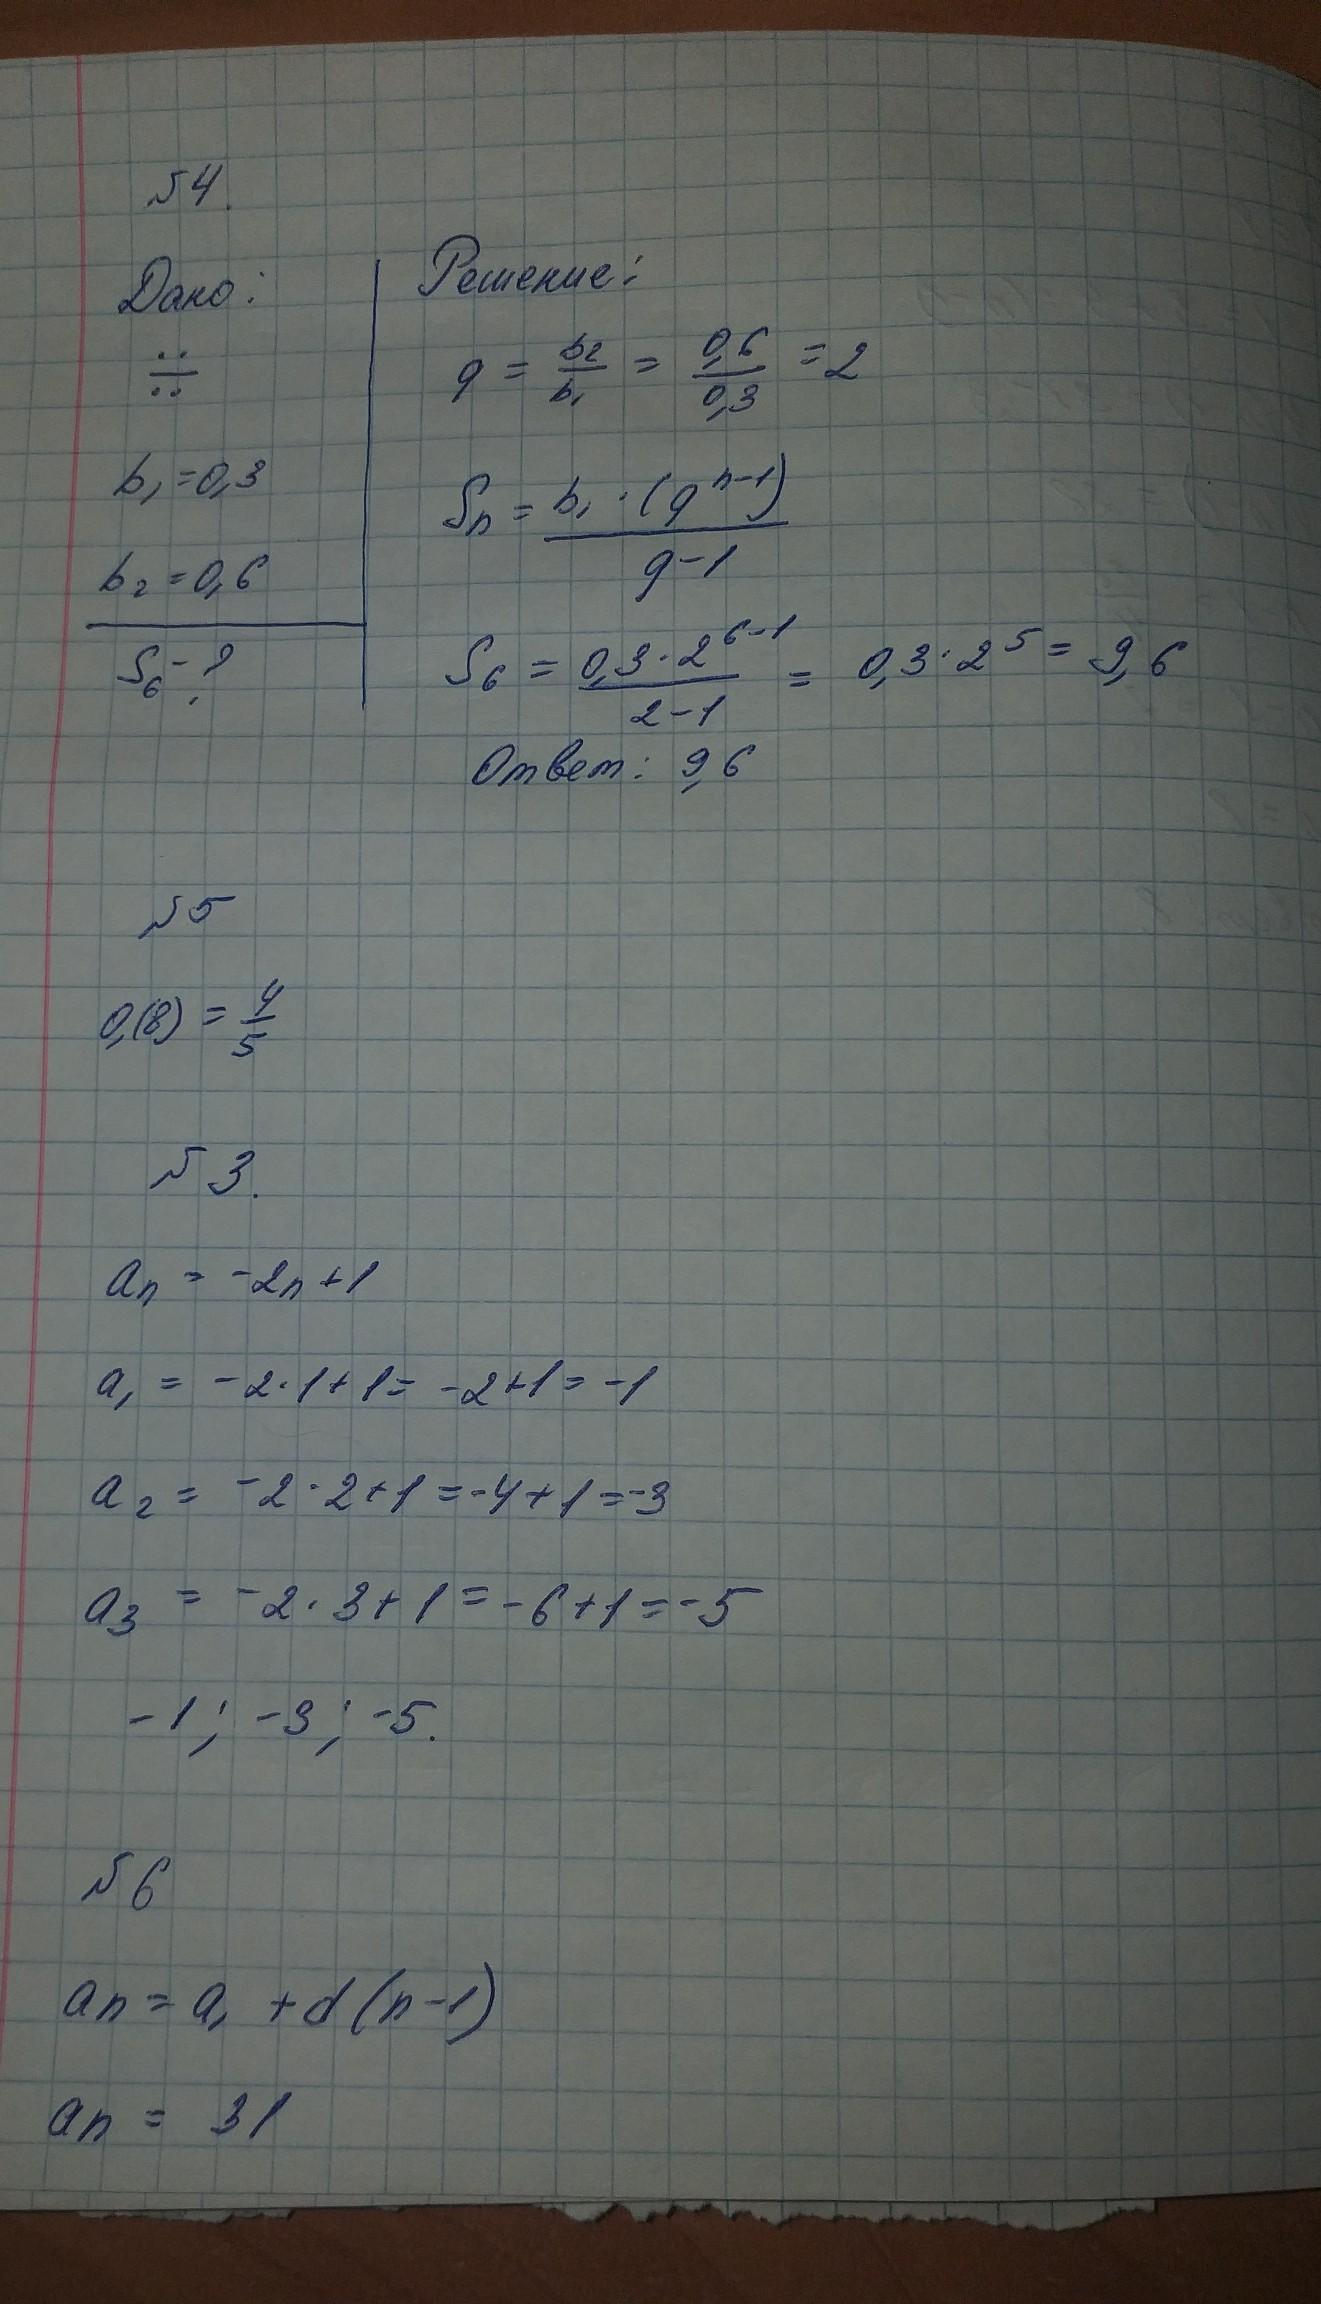 №4.
Дано:
÷
b₁ = 0,3
b₂ = 0,6
S₆ - ?
Решение:
q = b₂/b₁ = 0,6/0,3 = 2
Sₙ = b₁ · (qⁿ⁻¹)/q-1
S₆ = 0,3 · 2⁶⁻¹/2-1 = 0,3 · 2⁵ = 9,6
Ответ: 9,6
№5
0,(8) = 4/5
№3.
aₙ = -2n+1
a₁ = -2·1+1 = -2+1 = -1
a₂ = -2·2+1 = -4+1 = -3
a₃ = -2·3+1 = -6+1 = -5
-1; -3; -5.
№6
an = a₁ + d(n-1)
an = 31